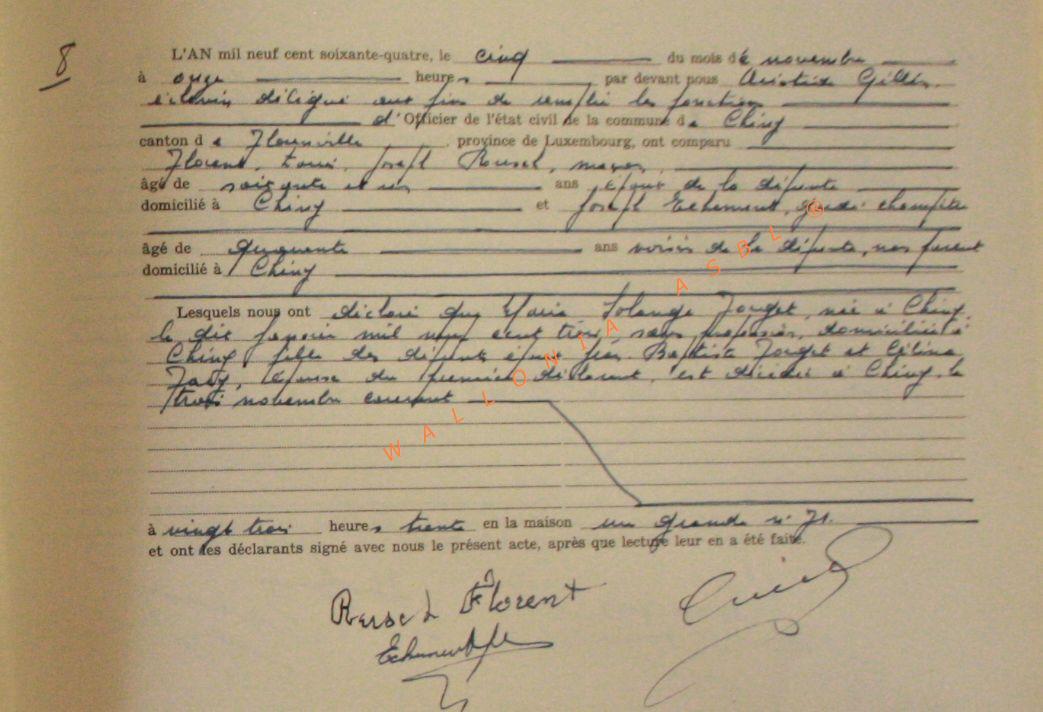 8
L'AN mil neuf cent soixante-quatre, le cinq du mois de novembre
à onze heures par devant nous Aristide Gilles,
échevin délégué aux fins de remplir les fonctions
d'Officier de l'état civil de la commune de Chiny
canton de Florenville, province de Luxembourg, ont comparu
Florent, Louis, Joseph Roussel, maçon,
âgé de soixante et un ans, époux de la défunte
domicilié à Chiny et Joseph Echement, garde champêtre
âgé de quarante ans voisin de la défunte, non parent
domicilié à Chiny
Lesquels nous ont déclaré que Maria Solange Jouget, née à Chiny,
le dix janvier mil neuf cent trois, sans profession, domiciliée à
Chiny fille des défunts époux Jean Baptiste Jouget et Céline
épouse du premier déclarant, est décédée à Chiny, le
trois novembre courant
à vingt trois heures trente en la maison rue grande n° 71.
et ont les déclarants signé avec nous le présent acte, après que lecture leur en a été faite.
Florent
WALLONIA ASBL ©